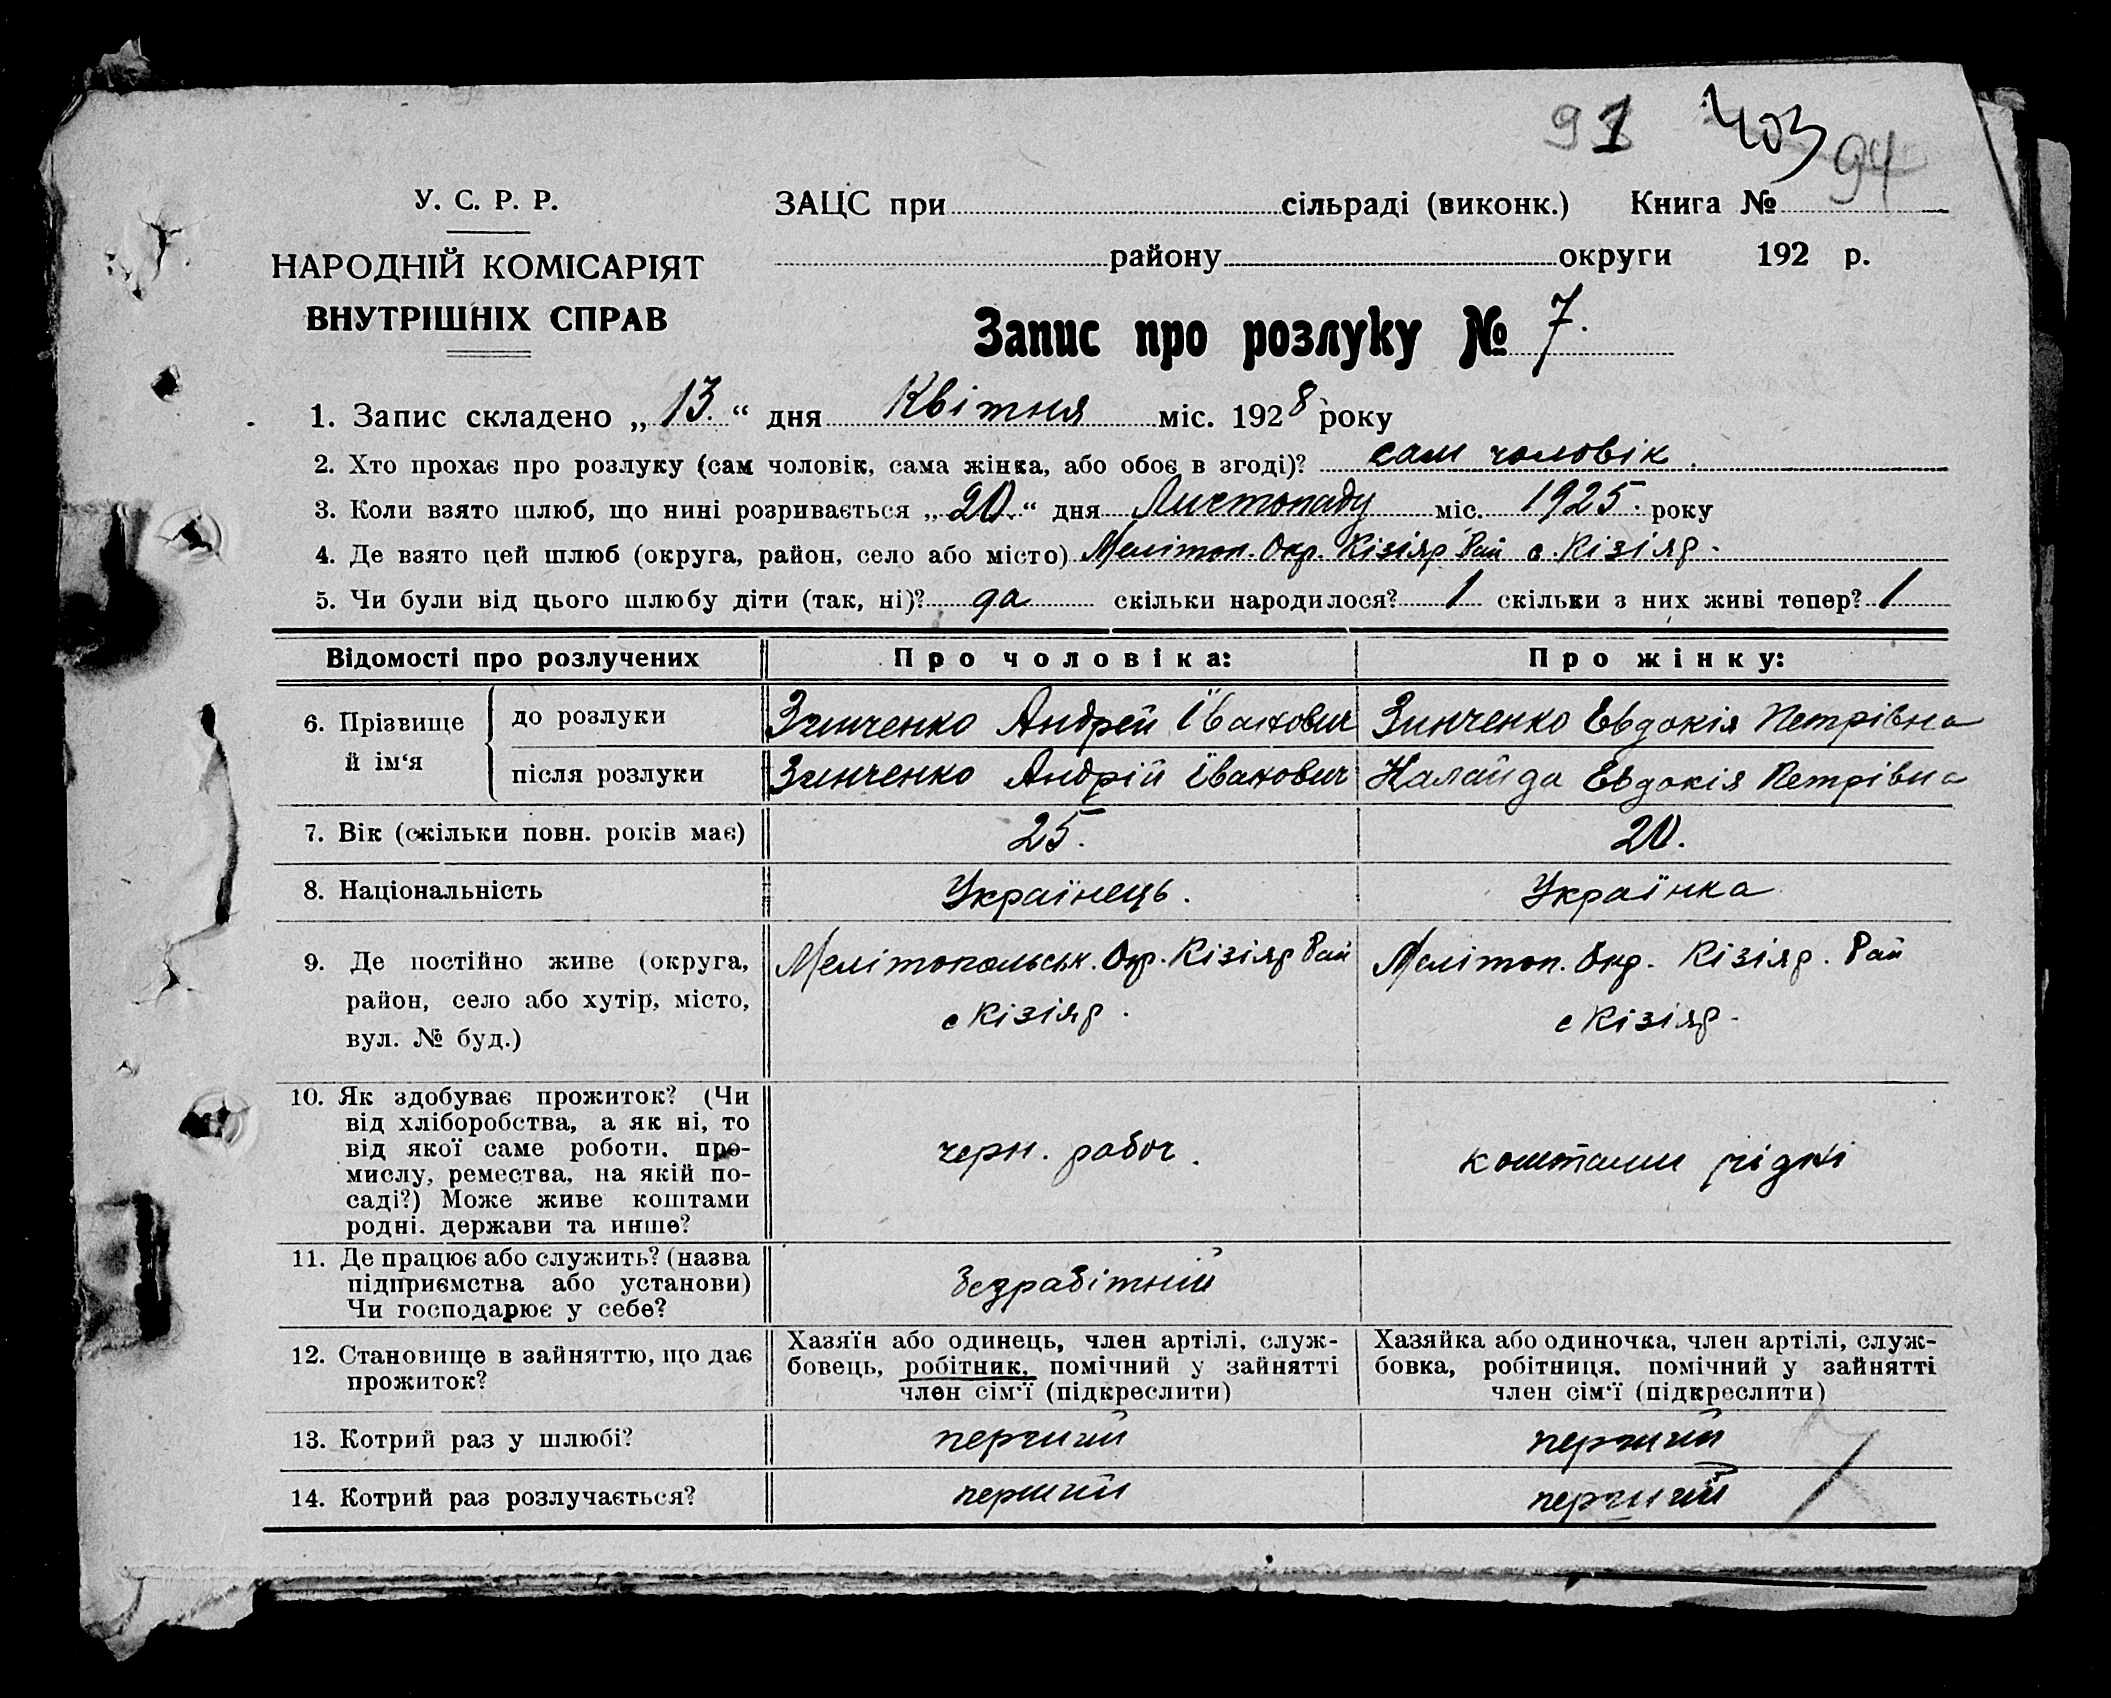 91 403 94
У. С. Р. Р.
НАРОДНІЙ КОМІСАРІЯТ
ВНУТРІШНІХ СПРАВ
ЗАЦС при сільраді (виконк.) Книга №
району округи 192 р.
Запис про розлуку № 7.
1. Запис складено „ 13. “ дня Квітня міс. 1928 року
2. Хто прохає про розлуку (сам чоловік, сама жінка, або обоє в згоді)? сам чоловік.
3. Коли взято шлюб, що нині розривається „ 20. “ дня Листопаду міс. 1925. року
4. Де взято цей шлюб (округа, район, село або місто) Меліто​п. Окр. Кізіяр Рай с. Кізіяр.
5. Чи були від цього шлюбу діти (так, ні)? да скільки народилося? 1 скільки з них живі тепер? 1
Відомості про розлучених Про чоловіка: Про жінку:
6. Прізвище й ім‘я
до розлуки Зинченко Андрей Іванович Зинченко Евдокія Петрівна
після розлуки Зинченко Андрій Іванович Налайда Евдокія Петрівна
7. Вік (скільки повн. років має) 25. 20.
8. Національність Українець. Українка
9. Де постійно живе (округа, Мелітопольськ. Окр. Кізіяр Рай Мелітоп. Окр. Кізіяр. Рай
район, село або хутір, місто, с Кізіяр. с Кізіяр.
вул. № буд.)
10. Як здобуває прожиток? (Чи
від хліборобства, а як ні, то
від якої саме роботи, про- черн. рабоч. коштами рідні
мислу, ремества, на якій по-
саді?) Може живе коштами
родні. держави та инше?
11. Де працює або служить? (назва
підприємства або установи) безрабітній
Чи господарює у себе?
12. Становище в зайняттю, що дає
прожиток?
Хазяїн або одинець, член артілі, служ-
бовець, робітник, помічний у зайнятті
член сім‘ї (підкреслити)
Хазяйка або одиночка, член артілі, служ-
бовка, робітниця, помічний у зайнятті
член сім‘ї (підкреслити)
13. Котрий раз у шлюбі? перший перший
14. Котрий раз розлучається? перший перший
7